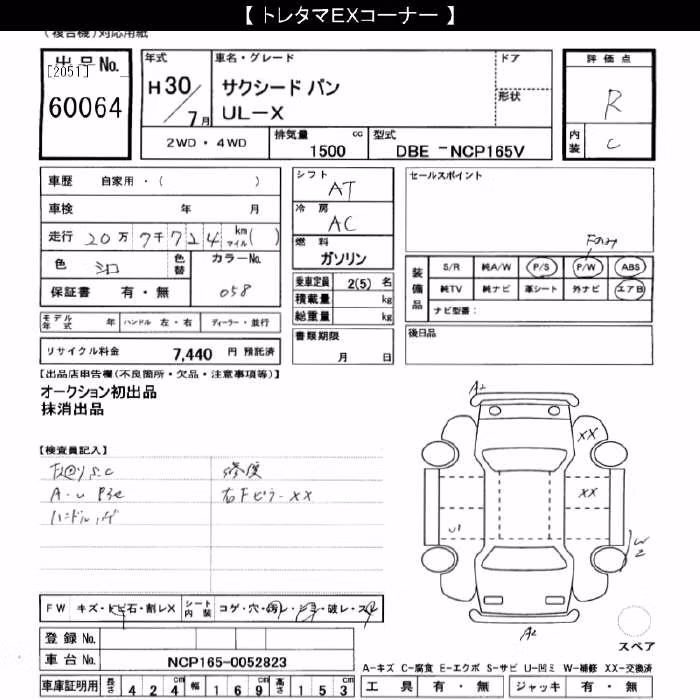 【 トレタマEXコーナー 】
(複合機)対応用紙
出品No.
[2051]
60064
年式
H30/7月
車名・グレード
サクシード バン
UL-X
ドア
形状
評価点
R
内装
C
2WD・4WD
排気量 cc
1500
型式
DBE -NCP165V
車歴 自家用・( )
車検 年 月
走行 20万7千724 km マイル( )
色 シロ
色替
カラーNo.
058
保証書 有・無
シフト
AT
冷房
AC
燃料
ガソリン
乗車定員 2(5) 名
積載量 kg
総重量 kg
書類期限
月 日
セールスポイント
Fのみ
装備品
S/R 純A/W P/S P/W ABS
純TV 純ナビ 革シート 外ナビ エアB
ナビ型番:
後日品
モデル年式 年 ハンドル 左・右 ディーラー・並行
リサイクル料金 7,440 円 預託済
【出品店申告欄(不良箇所・欠品・注意事項等)】
オークション初出品
抹消出品
【検査員記入】
修復
A・U
右FピラーXX
ハンドル
A2
XX
XX
U1
W2
A2
FW キズ・トビ石・割レX
シート内装 コゲ・穴・汚レ・シミ・破レ・スレ
登録No.
車台No. NCP165-0052823
スペア
A-キズ C-腐食 E-エクボ S-サビ U-凹ミ W-補修 XX-交換済
車庫証明用 長さ 424cm 幅 169cm 高さ 153cm
工具 有・無 ジャッキ 有・無